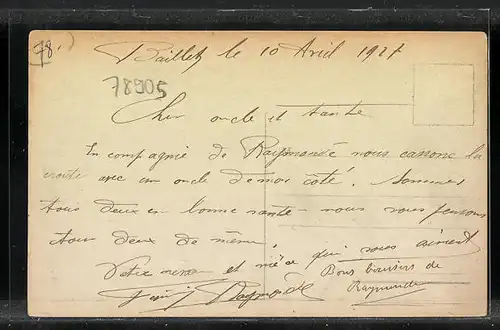 78.
Baillet le 10 Avril 1927
78905
Cher oncle et tante
En compagnie de Raymonde nous cassons la
croute avec un oncle de mon côté. Sommes
tous deux en bonne santé - nous vous pensons
tous deux de même,
Votre neveu et nièce qui vous aiment
Raymonde
Bons baisers de
Raymonde